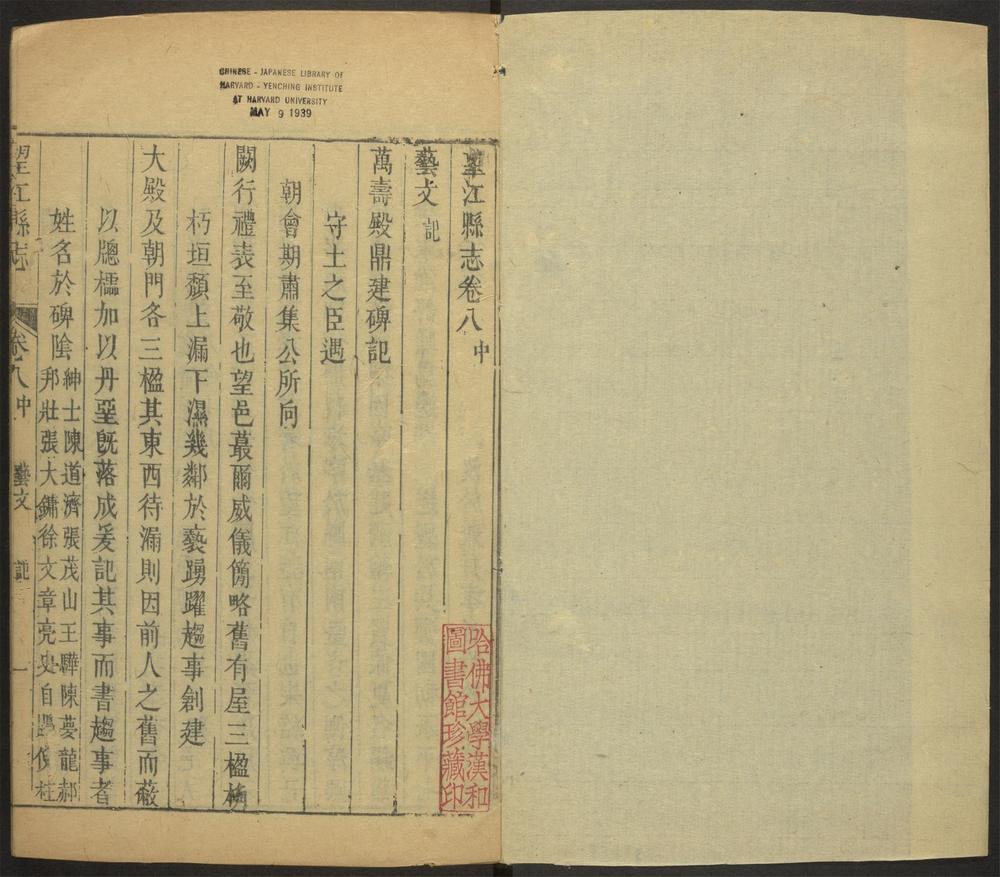 CHINESE - JAPANESE LIBRARY OF
HARVARD - YENCHING INSTITUTE
AT HARVARD UNIVERSITY
MAY 9 1939
望江縣志卷八中
藝文記
萬壽殿鼎建碑記
守土之臣遇
朝會期肅集公所向
闕行禮表至敬也望邑蕞爾威儀簡略舊有屋三楹
朽垣頹上漏下濕幾鄰於褻踴躍趨事創建
大殿及朝門各三楹其東西待漏則因前人之舊而蔽
以牕櫺加以丹堊旣落成爰記其事而書趨事者
姓名於碑陰
紳士陳道濟張茂山王驊陳夢龍郝
邦壯張大鏞徐文章亮史自 桂
望江縣志 卷八中 藝文 記 一
哈佛大學漢和
圖書館珍藏印